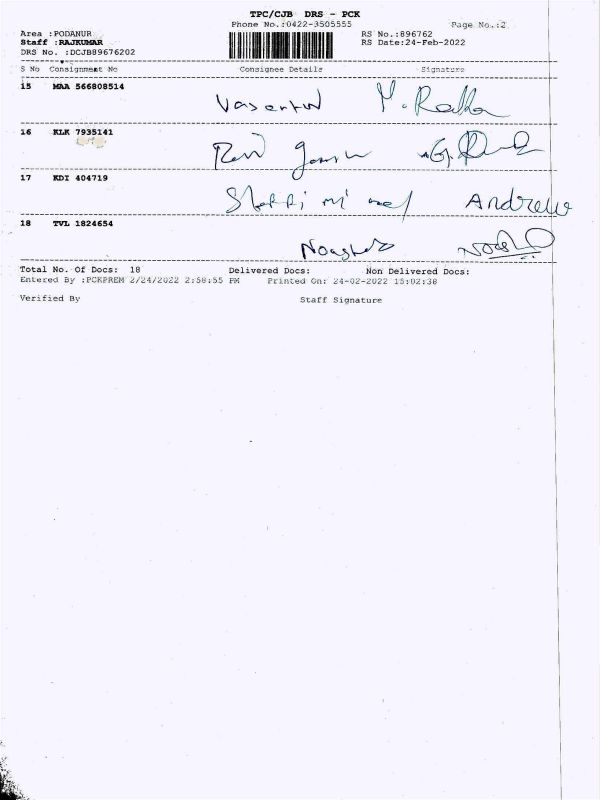 TPC/CJB DRS - PCK
Phone No.:0422-3505555 Page No.:2
Area :PODANUR RS No.:896762
Staff :RAJKUMAR RS Date:24-Feb-2022
DRS No. :DCJB89676202
S No Consignment No Consignee Details Signature
15 MAA 566808514
M. Radha
16 KLK 7935141
17 KDI 404719
Andrew
18 TVL 1824654
Total No. Of Docs: 18 Delivered Docs: Non Delivered Docs:
Entered By :PCKPREM 2/24/2022 2:58:55 PM Printed On: 24-02-2022 15:02:38
Verified By Staff Signature